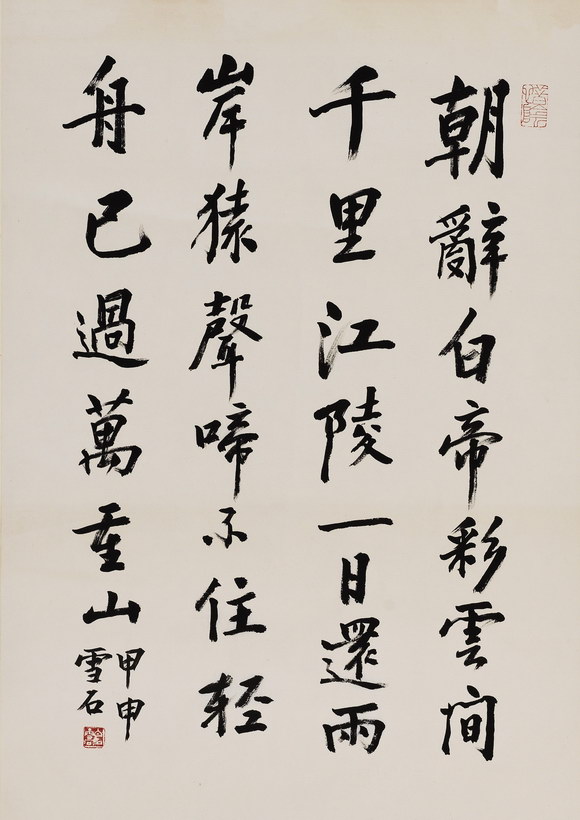 朝辭白帝彩雲間
千里江陵一日還兩
岸猿聲啼不住輕
舟已過萬重山
甲申
雪石